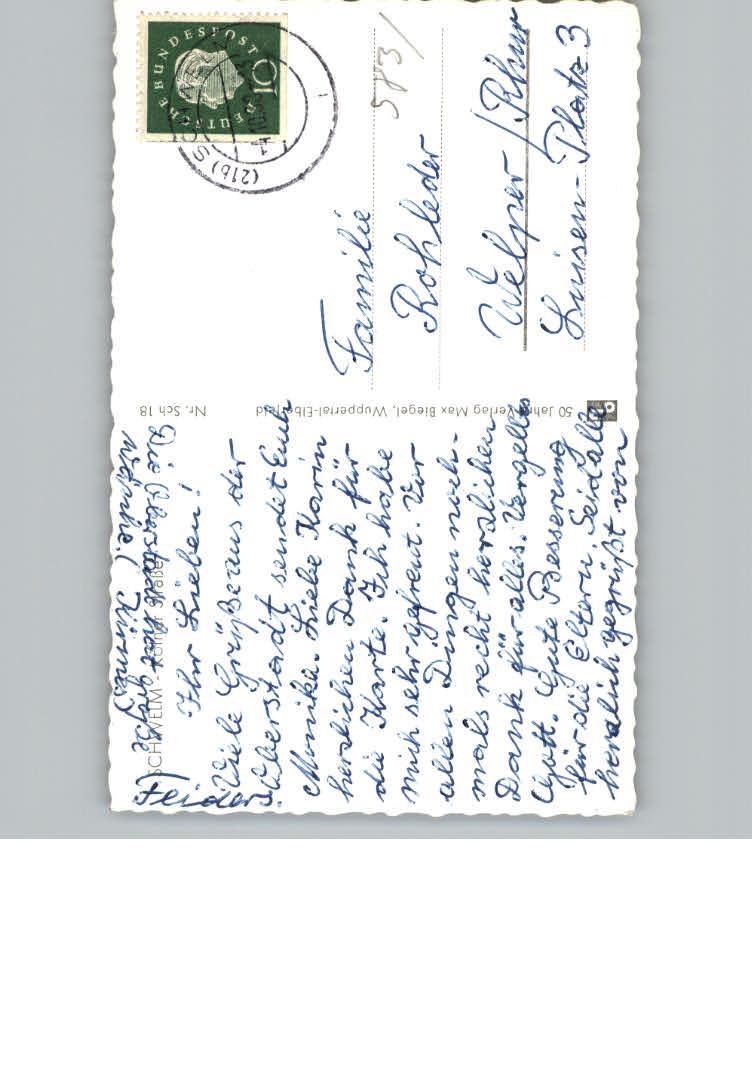 SCHWELM - Kölner Straße
Ihr Lieben!
Viele Grüße aus der
Oberstadt sendet Euch
Monika. Liebe Karin
herzlichen Dank für
die Karte. Ich habe
mich sehr gefreut. Vor
allen Dingen noch-
mals recht herzlichen
Dank für alles. Vergelts
Gott. Gute Besserung
für die Eltern. Seid alle
herzlich gegrüßt von
Die Oberstadt hier große
(Kirmes)
Nr. Sch 18
50 Jahre Verlag Max Biegel, Wuppertal-Elberfeld
DEUTSCHE BUNDESPOST
10
(21b)
583/
Familie
Rohleder
Welper/Rhur
Luisen-Platz 3